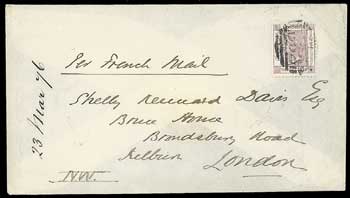 Per French Mail
Shelly Kennard Davis Esq
Bruce House
Brondsbury Road
Kilburn London
N.W.
23 Mar 76